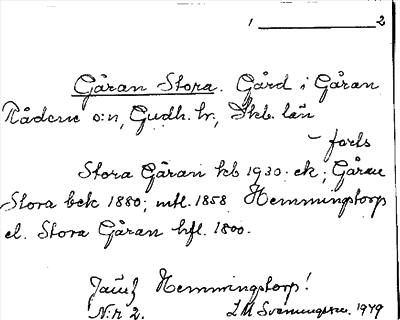 1 ___ 2
Gåran Stora. Gård i Gåran
Rådene s:n, Gudh. hr, Skb. län
– forts
Stora Gåran kb 1930. ek; Gåran
Stora bek 1880; mtl. 1858 Hemmingstorp
el. Stora Gåran hfl. 1800.
Jämf Hemmingstorp!
N:r 2. 1949